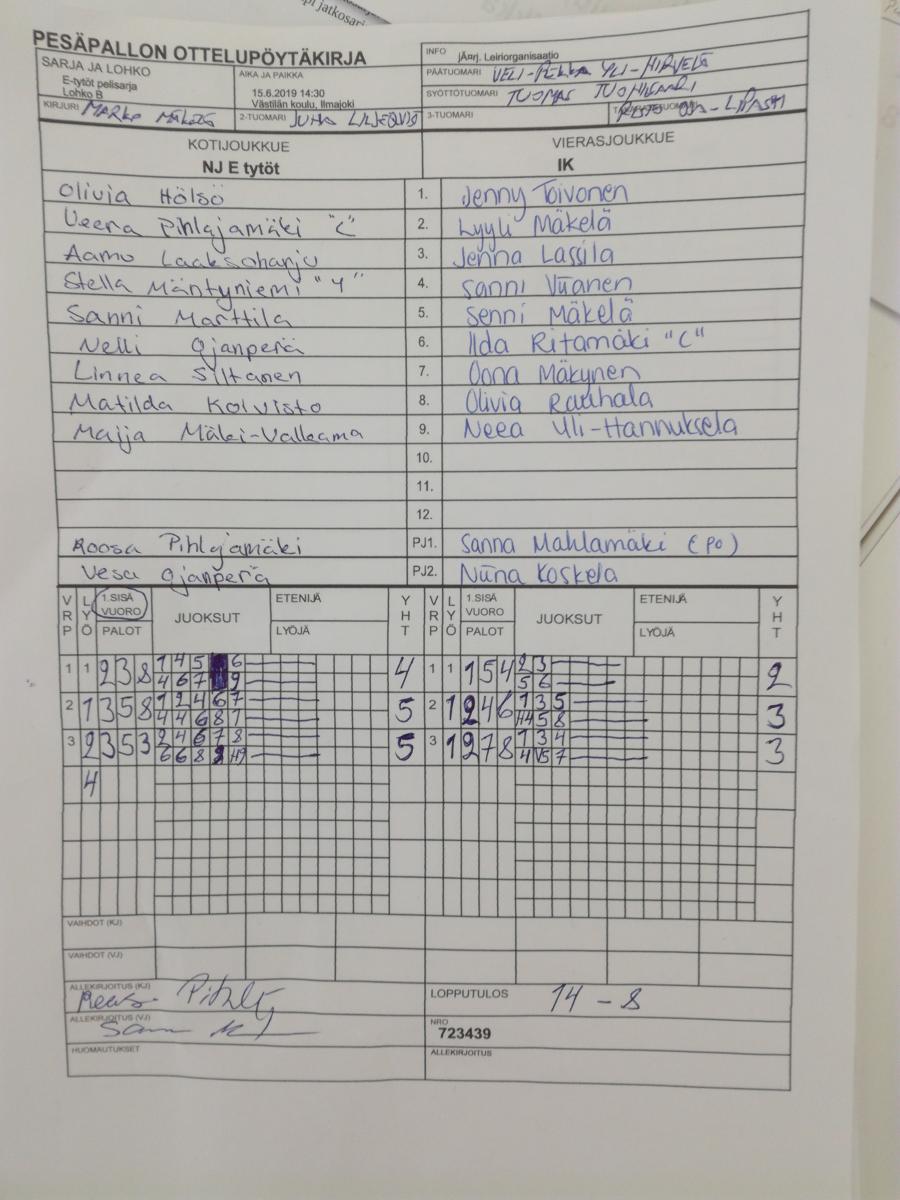 pi jatkosarj
PESÄPALLON OTTELUPÖYTÄKIRJA
SARJA JA LOHKO
E-tytöt pelisarja
Lohko B
AIKA JA PAIKKA
15.6.2019 14:30
Västilän koulu, Ilmajoki
INFO jÄrrj. Leiriorganisaatio
PÄÄTUOMARI VELI-PEKKA YLI-HIRVELÄ
SYÖTTÖTUOMARI TUOMAS
KIRJURI MARKO
2-TUOMARI JUHA LILJEQVIST
3-TUOMARI
KOTIJOUKKUE VIERASJOUKKUE
NJ E tytöt IK
Olivia Hölsö 1. Jenny Toivonen
Veera Pihlajamäki "C" 2. Lyyli Mäkelä
Aamu Laaksoharju 3. Jenna Lassila
Stella Mäntyniemi "4" 4. Sanni
Sanni Marttila 5. Senni Mäkelä
Nelli Ojanperä 6. Ilda Ritamäki "C"
Linnea Siltanen 7. Oona Mäkynen
Matilda Koivisto 8. Olivia Rauhala
Maija Mäki-Valkama 9. Neea Yli-Hannuksela
10.
11.
12.
Roosa Pihlajamäki PJ1. Sanna Mahlamäki (PO)
Vesa Ojanperä PJ2. Niina Koskela
VRP LYÖ 1.SISÄ VUORO PALOT JUOKSUT ETENIJÄ LYÖJÄ YHT VRP LYÖ 1.SISÄ VUORO PALOT JUOKSUT ETENIJÄ LYÖJÄ YHT
1 1 2 3 8 1 4 5 6 4 1 1 1 5 4 2 3 2
4 6 7 9 5 6
2 1 3 5 8 1 2 4 6 7 5 2 1 2 4 6 1 3 5 3
4 4 6 8 1 H4 5 8
3 2 3 5 3 2 4 6 7 8 5 3 1 2 7 8 1 3 4 3
6 6 8 H9 4 V5 7
4
VAIHDOT (KJ)
VAIHDOT (VJ)
ALLEKIRJOITUS (KJ)
LOPPUTULOS 14 - 8
ALLEKIRJOITUS (VJ)
NRO
723439
HUOMAUTUKSET ALLEKIRJOITUS